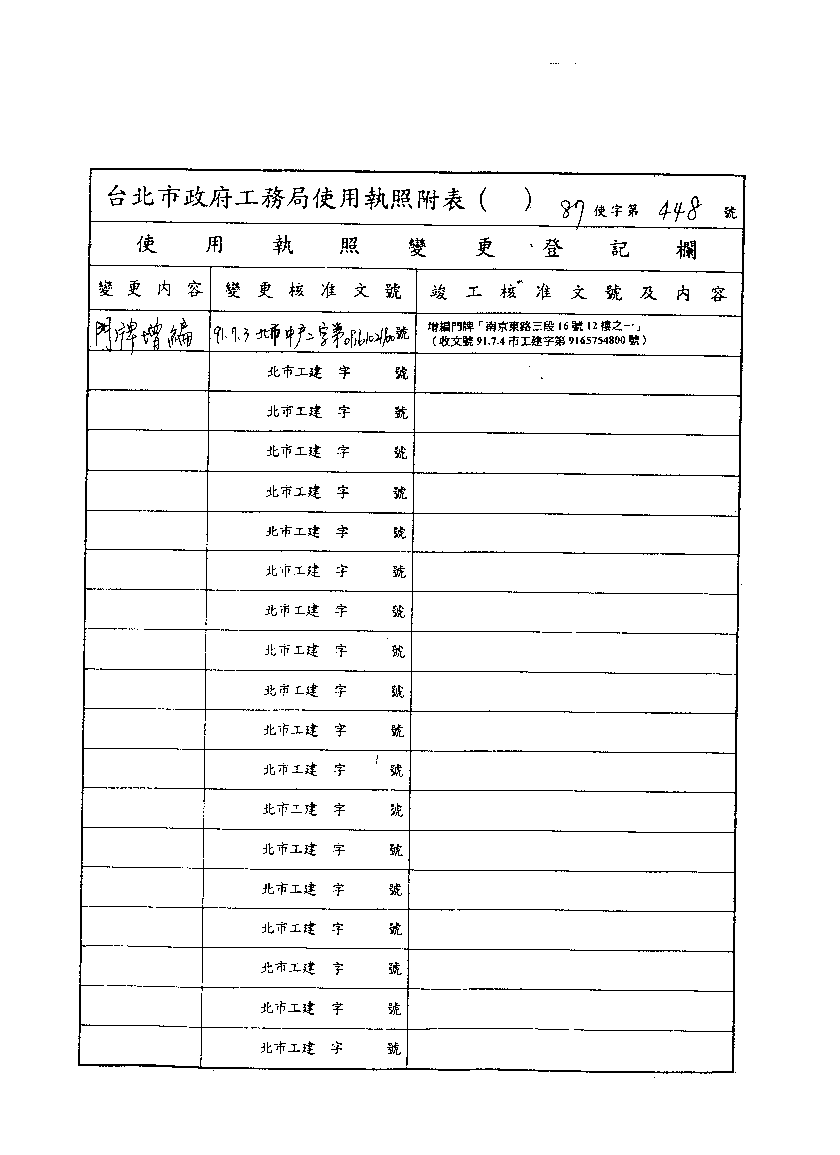 台北市政府工務局使用執照附表（　）　87 使字第 448 號
使用執照變更登記欄
變更內容　變更核准文號　竣工核准文號及內容
門牌增編　91.7.3 北市中戶二字第　號　增編門牌「南京東路三段16號12樓之一」
（收文號 91.7.4 市工建字第 9165754800 號）
北市工建　字　號
北市工建　字　號
北市工建　字　號
北市工建　字　號
北市工建　字　號
北市工建　字　號
北市工建　字　號
北市工建　字　號
北市工建　字　號
北市工建　字　號
北市工建　字　號
北市工建　字　號
北市工建　字　號
北市工建　字　號
北市工建　字　號
北市工建　字　號
北市工建　字　號
北市工建　字　號